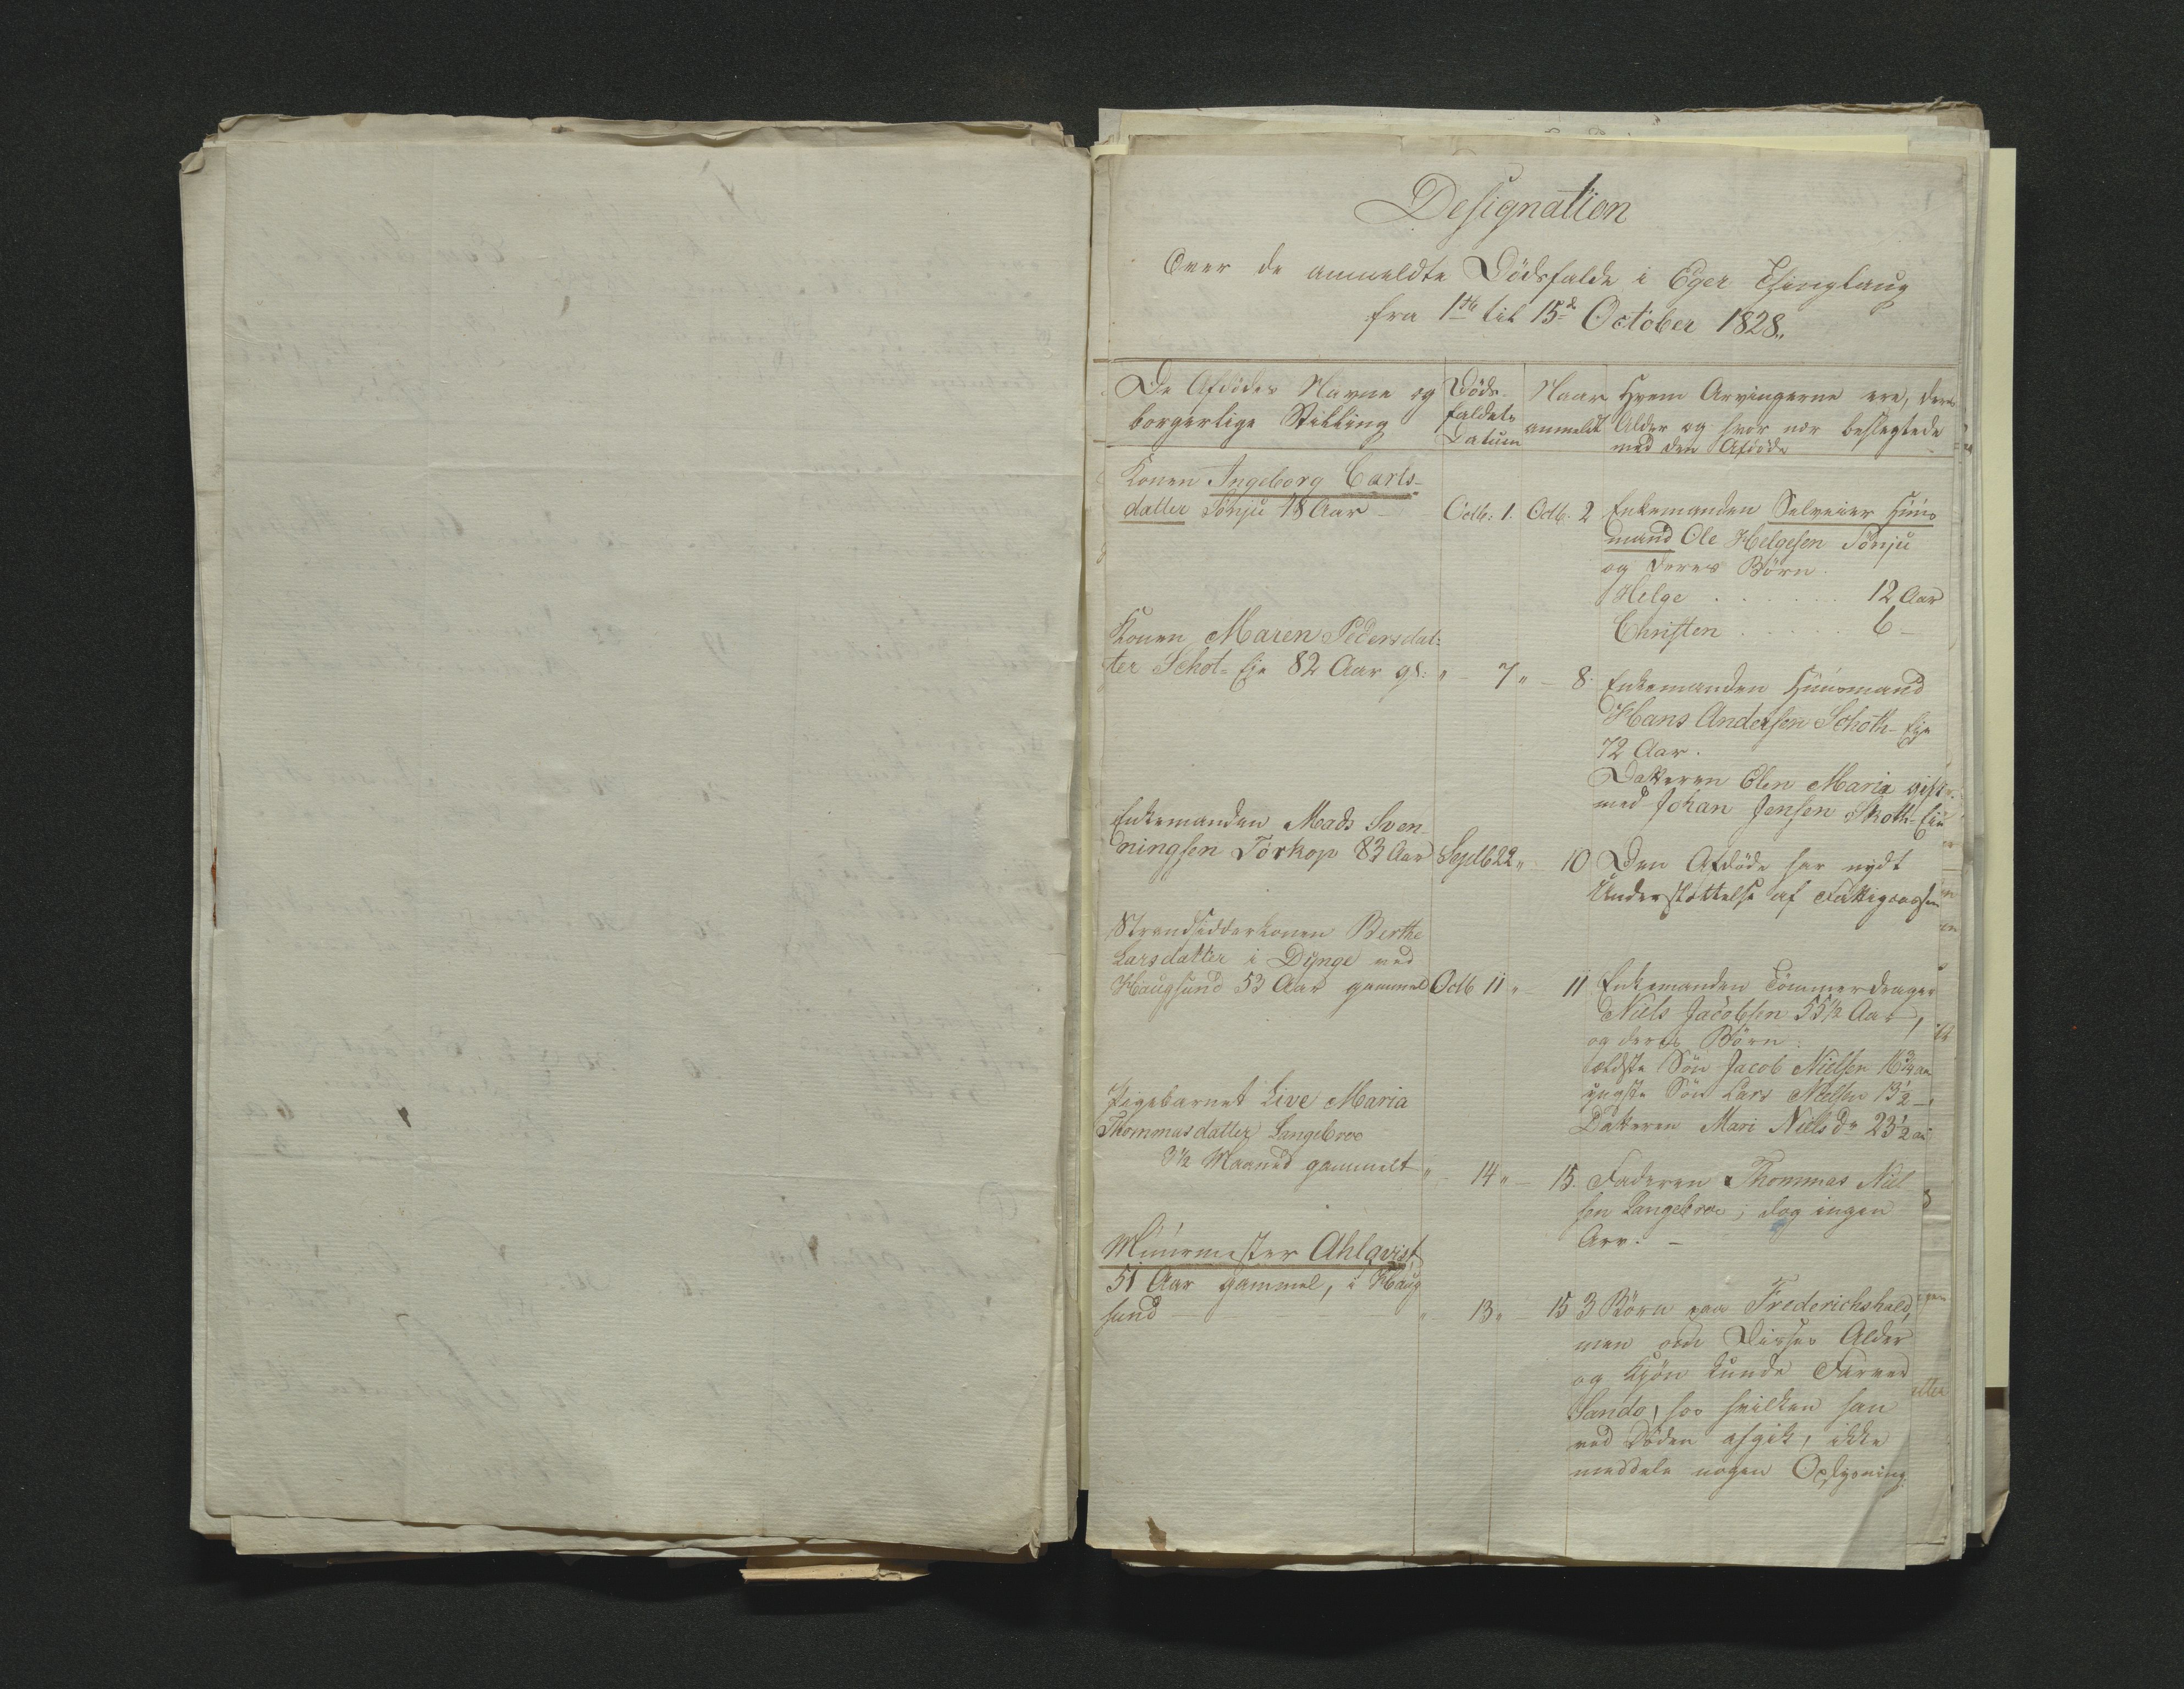 Designation
Over de anmeldte Dödsfalde i Eger Thinglaug
fra 1ste til 15de October 1828.,
De Afdödes Navne og
borgerlige Stilling
Döds-
faldets
Datum
Naar
anmeldt
Hvem Arvingerne ere, deres
Alder og hvor nær beslegtede
med den Afdöde
Konen Ingeborg Carls-
datter Sönju 48 Aar - Octb: 1. Octb. 2
Enkemanden Selveier Huus
mand Ole Helgesen Sönju
og deres Börn.
Helge . . . . . . 12 Aar
Christen . . . . . 6 -
Konen Maren Pedersdat-
ter Schot-Eje 82 Aar gl: " - 7 " - 8.
Enkemanden Huusmand
Hans Andersen Schoth-Eje
72 Aar.
Datteren Olen Maria gift
med Johan Jensen Skoth-Eie
Enkemanden Mads Sven-
ningsen Törkop 83 Aar Septb 22 " 10
Den Afdöde har nydt
Understöttelse af Fattigcassen
Strandsidderkonen Berthe
Larsdatter i Dynge ved
Haugsund 53 Aar gammel Octb 11 " - 11
Enkemanden Tömmerdrager
Niels Jacobsen 55 1/2 Aar,
og deres Börn:
ældste Sön Jacob Nielsen 16 3/4 aar
yngste Sön Lars Nielsen 13 1/2 -
Datteren Mari Nielsdr 23 1/2 aar
Pigebarnet Live Maria
Thommasdatter Langebroe
3 1/2 Maaned gammelt " - 14 " - 15.
Faderen Thommas Niel
sen Langebroe; dog ingen
Arv. -
Muurmester Ahlqvist,
51 Aar gammel, i Haug
sund - " 13 " - 15
3 Börn paa Frederichshald,
men om Disses Alder
og Kjön kunde Farver
Sando, hos hvilken han
ved Döden afgik, ikke
meddele nogen Oplysning.